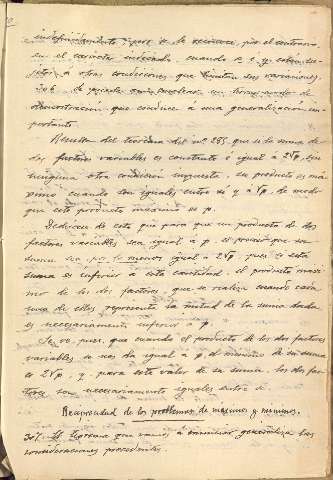 indefinidamente; pero si le reconoce, por el contrario
en el caracter enfocado, cuando x e y están su-
jetos a otras condiciones que limitan sus variaciones.
306. Se puede
demostración que conduce á una generalización im-
portante.
Resulta del teorema del nº 255, que si la suma de
dos factores variables es constante é igual á 2√p, sin
ninguna otra condición impuesta, su producto es má-
ximo cuando son iguales entre sí y á √p, de modo
que este producto máximo es p.
Dedúcese de esto que para que un producto de dos
factores variables sea igual a p es preciso que su
suma sea por lo menos igual á 2√p, pues si esta
suma es inferior á esta cantidad, el producto máxi-
mo de los dos factores, que se realiza cuando cada
uno de ellos representa la mitad de la suma dada
es necesariamente inferior a p.
Se ve, pues, que cuando el producto de los dos factores
variables se nos da igual a p, el mínimo de su suma
es 2√p, y para este valor de su suma, los dos fac-
tores son necesariamente iguales entre sí.
Reciprocidad de los problemas de máximos y mínimos.
307. El teorema que vamos á enunciar generaliza las
consideraciones precedentes.